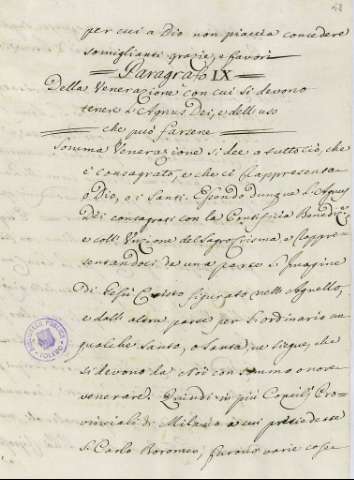 per cui a Dio non piaccia concedere
somiglianti grazie, e favori
Paragrafo IX
Della Venerazione con cui si devono
tenere l'Agnus Dei, e dell'uso
che può farsene
Somma Venerazione si dee a tutto ciò, che
è consagrato, e che ci rappresenta
o Dio, o i Santi. Essendo dunque l'Agnus
Dei consagrati con la Pontificia Benediz.e
e coll'Unzione del Sagro Crisma, e rappre
sentandoci da una parte l'Imagine
Di Gesù Cristo figurato nello Agnello,
e dall'altra parte per l'ordinario un
qualche Santo, o Santa, ne siegue, che
si devono da Noi con sommo onore
venerare. Quindi in più Concilj Pro
vinciali di Milano a cui presiedette
S. Carlo Boromeo, furono varie cose